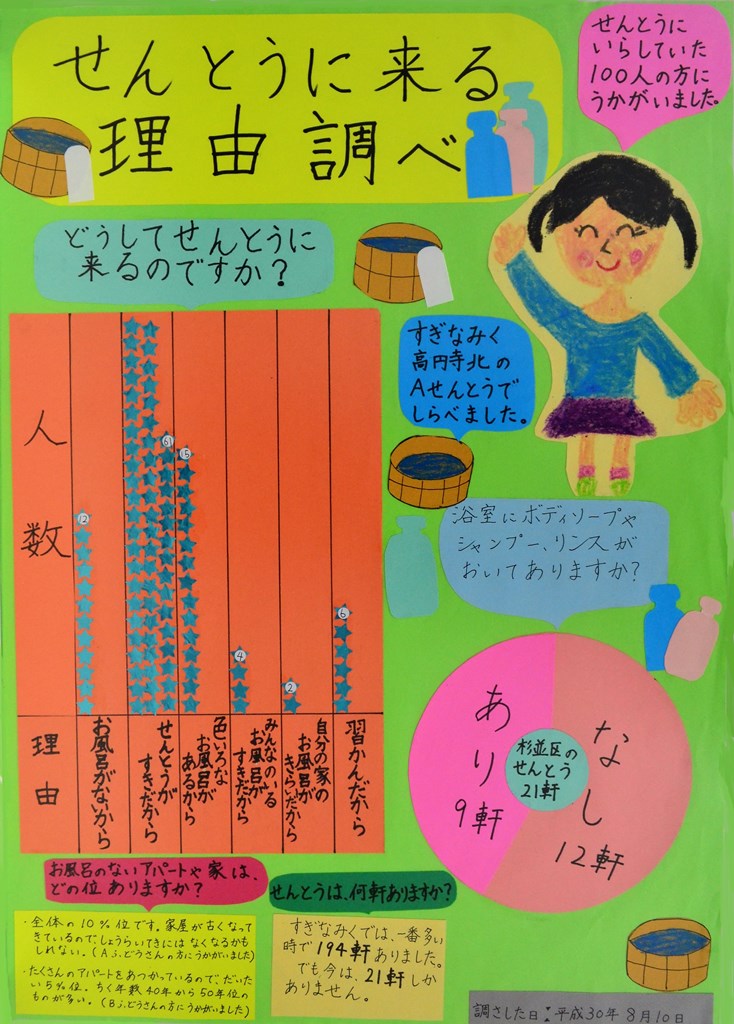 せんとうに来る
理由調べ
せんとうに
いらしていた
100人の方に
うかがいました。
どうしてせんとうに
来るのですか？
すぎなみく
高円寺北の
Aせんとうで
しらべました。
人数
12
61
15
4
2
6
理由
お風呂がないから
せんとうが
すきだから
色いろな
お風呂が
あるから
みんなのいる
お風呂が
すきだから
自分の家の
お風呂が
きらいだから
習かんだから
浴室にボディソープや
シャンプー、リンスが
おいてありますか？
あり
9軒
なし
12軒
杉並区の
せんとう
21軒
お風呂のないアパートや家は、
どの位ありますか？
・全体の10％位です。家屋が古くなって
きているので、しょうらいてきにはなくなるかも
しれない。（Aふどうさんの方にうかがいました）
・たくさんのアパートをあつかっているので、だいた
い5％位。ちく年数40年から50年位の
ものが多い。（Bふどうさんの方にうかがいました）
せんとうは、何軒ありますか？
すぎなみくでは、一番多い
時で194軒ありました。
でも今は、21軒しか
ありません。
調さした日：平成30年8月10日